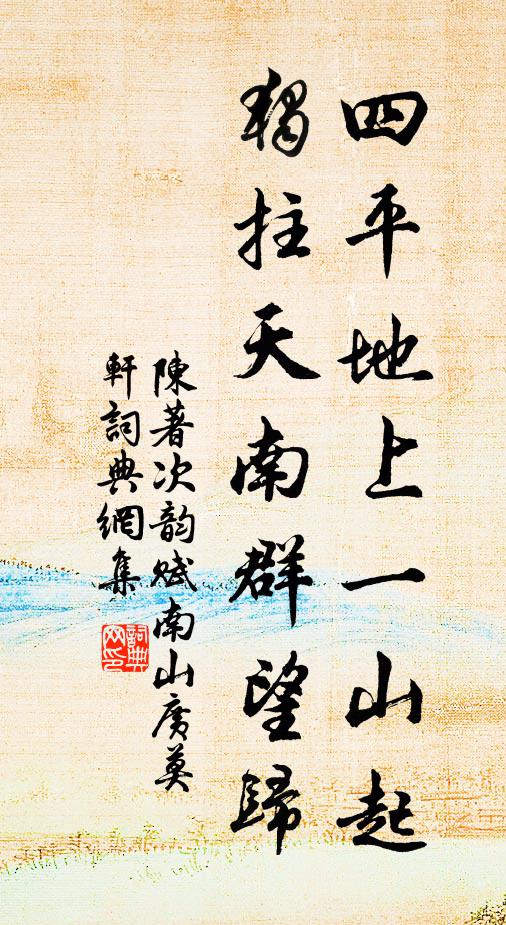 四平地上一山起
獨拄天南群望歸
陳著次韵賦南山廣莫
軒詞典網集
詞典